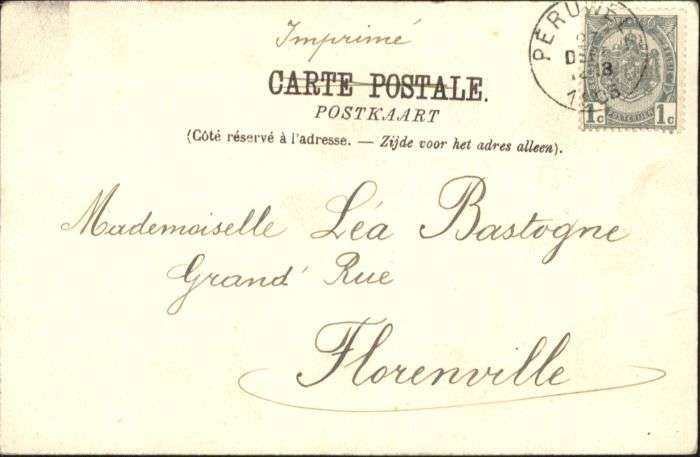 Imprimé
PÉRUWE
CARTE POSTALE.
POSTKAART
(Côté réservé à l'adresse. — Zijde voor het adres alleen).
1c 1c
Mademoiselle Léa Bastogne
Grand' Rue
Florenville